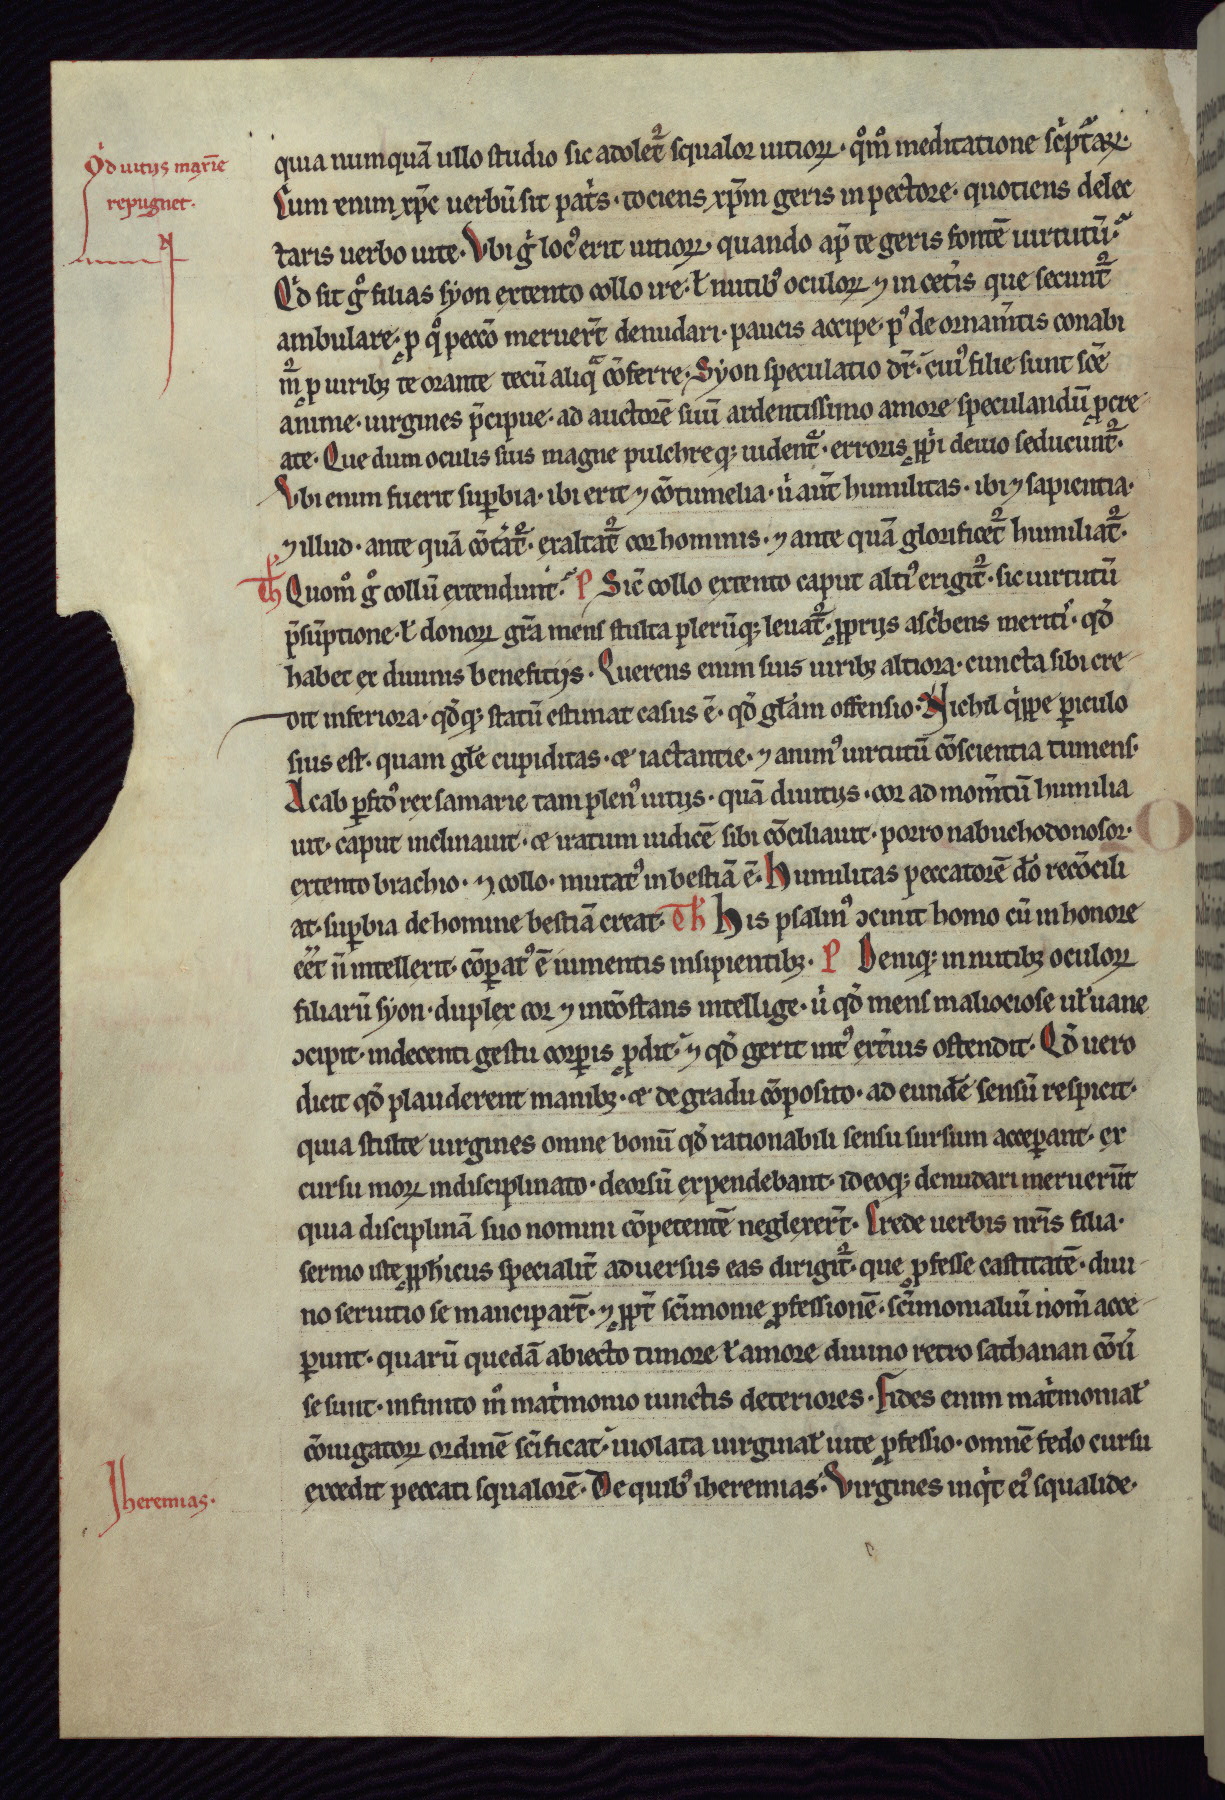 Qd uitijs mat̄ie
repugnet.
quia numquā ullo studio sic adolet᷑ squalor uitioꝝ· qm̊ meditatione sc̓pt᷑aꝝ·
Cum enim xp̄c uerbū sit pat̓s· tociens xp̄m geris in pectore· quotiens delec
taris uerbo uite· Vbi g̓ locꝰ erit uitioꝝ· quando ap̄ te geris fontē uirtutū·
Qd̓ sit g̊ filias syon extento collo ire· ł nutibꝰ oculoꝝ ⁊ in cet̓is que secunt᷑
ambulare· ꝓ q̊ pecc̄o meruer̄t denudari· paucis accipe· pꝰ de ornam̄tis conabi
m᷑ ꝓ uiribꝫ te orante tecū aliqͣ cōferre· Syon speculatio dr̄· cuiꝰ filie sunt sc̄e
anime· uirgines p̄cipue· ad auctorē suū ardentissimo amore speculandū ꝓcre
ate· Que dum oculis suis magne pulchreqꝫ uident᷑· erroris ꝓpi deuio seducunt᷑·
Vbi enim fuerit suꝑbia· ibi erit ⁊ cōtumelia· u̓ aūt humilitas· ibi ⁊ sapientia·
⁊ illud· ante quā cōt̓at᷑· exaltat᷑ cor hominis· ⁊ ante quā glorificet᷑ humiliat᷑·
Th Quom̊ g̊ collū extendunt· P Sic̄ collo extento caput altiꝰ erigit᷑· sic uirtutū
p̄sūptione· ł donoꝝ gr̄a mens stulta plerūqꝫ leuat᷑· ꝓprijs asc̓bens meriti̓s· qd̓
habet ex diuinis benefitijs· Querens enim suis uiribꝫ altiora· cuncta sibi cre
dit inferiora· qd̓qꝫ statū estimat casus ē· qd̓ gl̄am offensio· Nichil q̓ppe ꝑiculo
sius est· quam gl̄e cupiditas· et iactantie· ⁊ animꝰ uirtutū cōscientia tumens·
Acab ꝑfidꝰ rex samarie tam plenꝰ uitijs· quā diuitijs· cor ad mom̄tū humilia
uit· caput inclinauit· et iratum iudicē sibi cōciliauit· porro nabuchodonosor·
extento brachio· ⁊ collo· mutatꝰ in bestiā ē· Humilitas peccatorē dō recōcili
at· suꝑbia de homine bestiā creat· Th His psalmꝰ ↄcinit homo cū in honore
eēt n̄ intellexit· cōꝑatꝰ ē iumentis insipientibꝫ· P Deniqꝫ in nutibꝫ oculoꝝ
filiarū syon· duplex cor ⁊ incōstans intellige· u̓ qd̓ mens maliociose ut̓ uane
ↄcipit· indecenti gestu corꝑis ꝓdit· ⁊ qd̓ gerit intꝰ ext̓ius ostendit· Qd̓ uero
dicit qd̓ plauderent manibꝫ· et de gradu cōposito· ad eundē sensū respicit·
quia stulte uirgines omne bonū qd̓ rationabili sensu sursum acceꝑant· ex
cursu moꝝ indisciplinato· deorsū expendebant· ideoqꝫ denudari meruerūt
quia disciplinā suo nomini cōpetentē neglexer̄t· Crede uerbis nr̄is filia·
sermo iste ꝓph̓icus specialit̄ aduersus eas dirigit᷑· que ꝓfesse castitatē· diui
no seruitio se manciparāt· ⁊ ꝓpt̄ sc̄imonie ꝓfessionē· sc̄imonialiū nom̄ acce
ꝑunt· quarū quedā abiecto timore ł amore diuino retro sathanan cōu̓
se sunt· infinito m̊ mat̓monio iunctis deteriores· Fides enim mat̓monial̓
cōiugatoꝝ ordinē sc̄ificat· uiolata uirginal̓ uite ꝓfessio· omnē fedo cursu
excedit peccati squalorē· De quibꝰ iheremias· Virgines inq̓t eiꝰ squalide·
Jheremias·